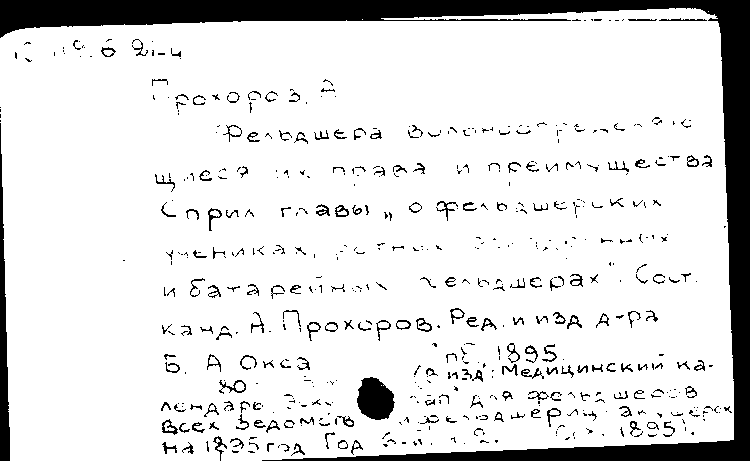 Прохоров. А
Фельдшера вольноопределяю
щиеся их права и преимущества
С прил главы „ о фельдшерских
учениках, ротных эскадронных
и батарейных фельдшерах". Сост.
канд. А. Прохоров. Ред. и изд д-ра
Б. А Окса 1895.
80 изд: Медицинский ка-
лендарь для фельдшеров
всех ведомств и фельдшериц акушерок
на 1895 год Год 2. 1895).